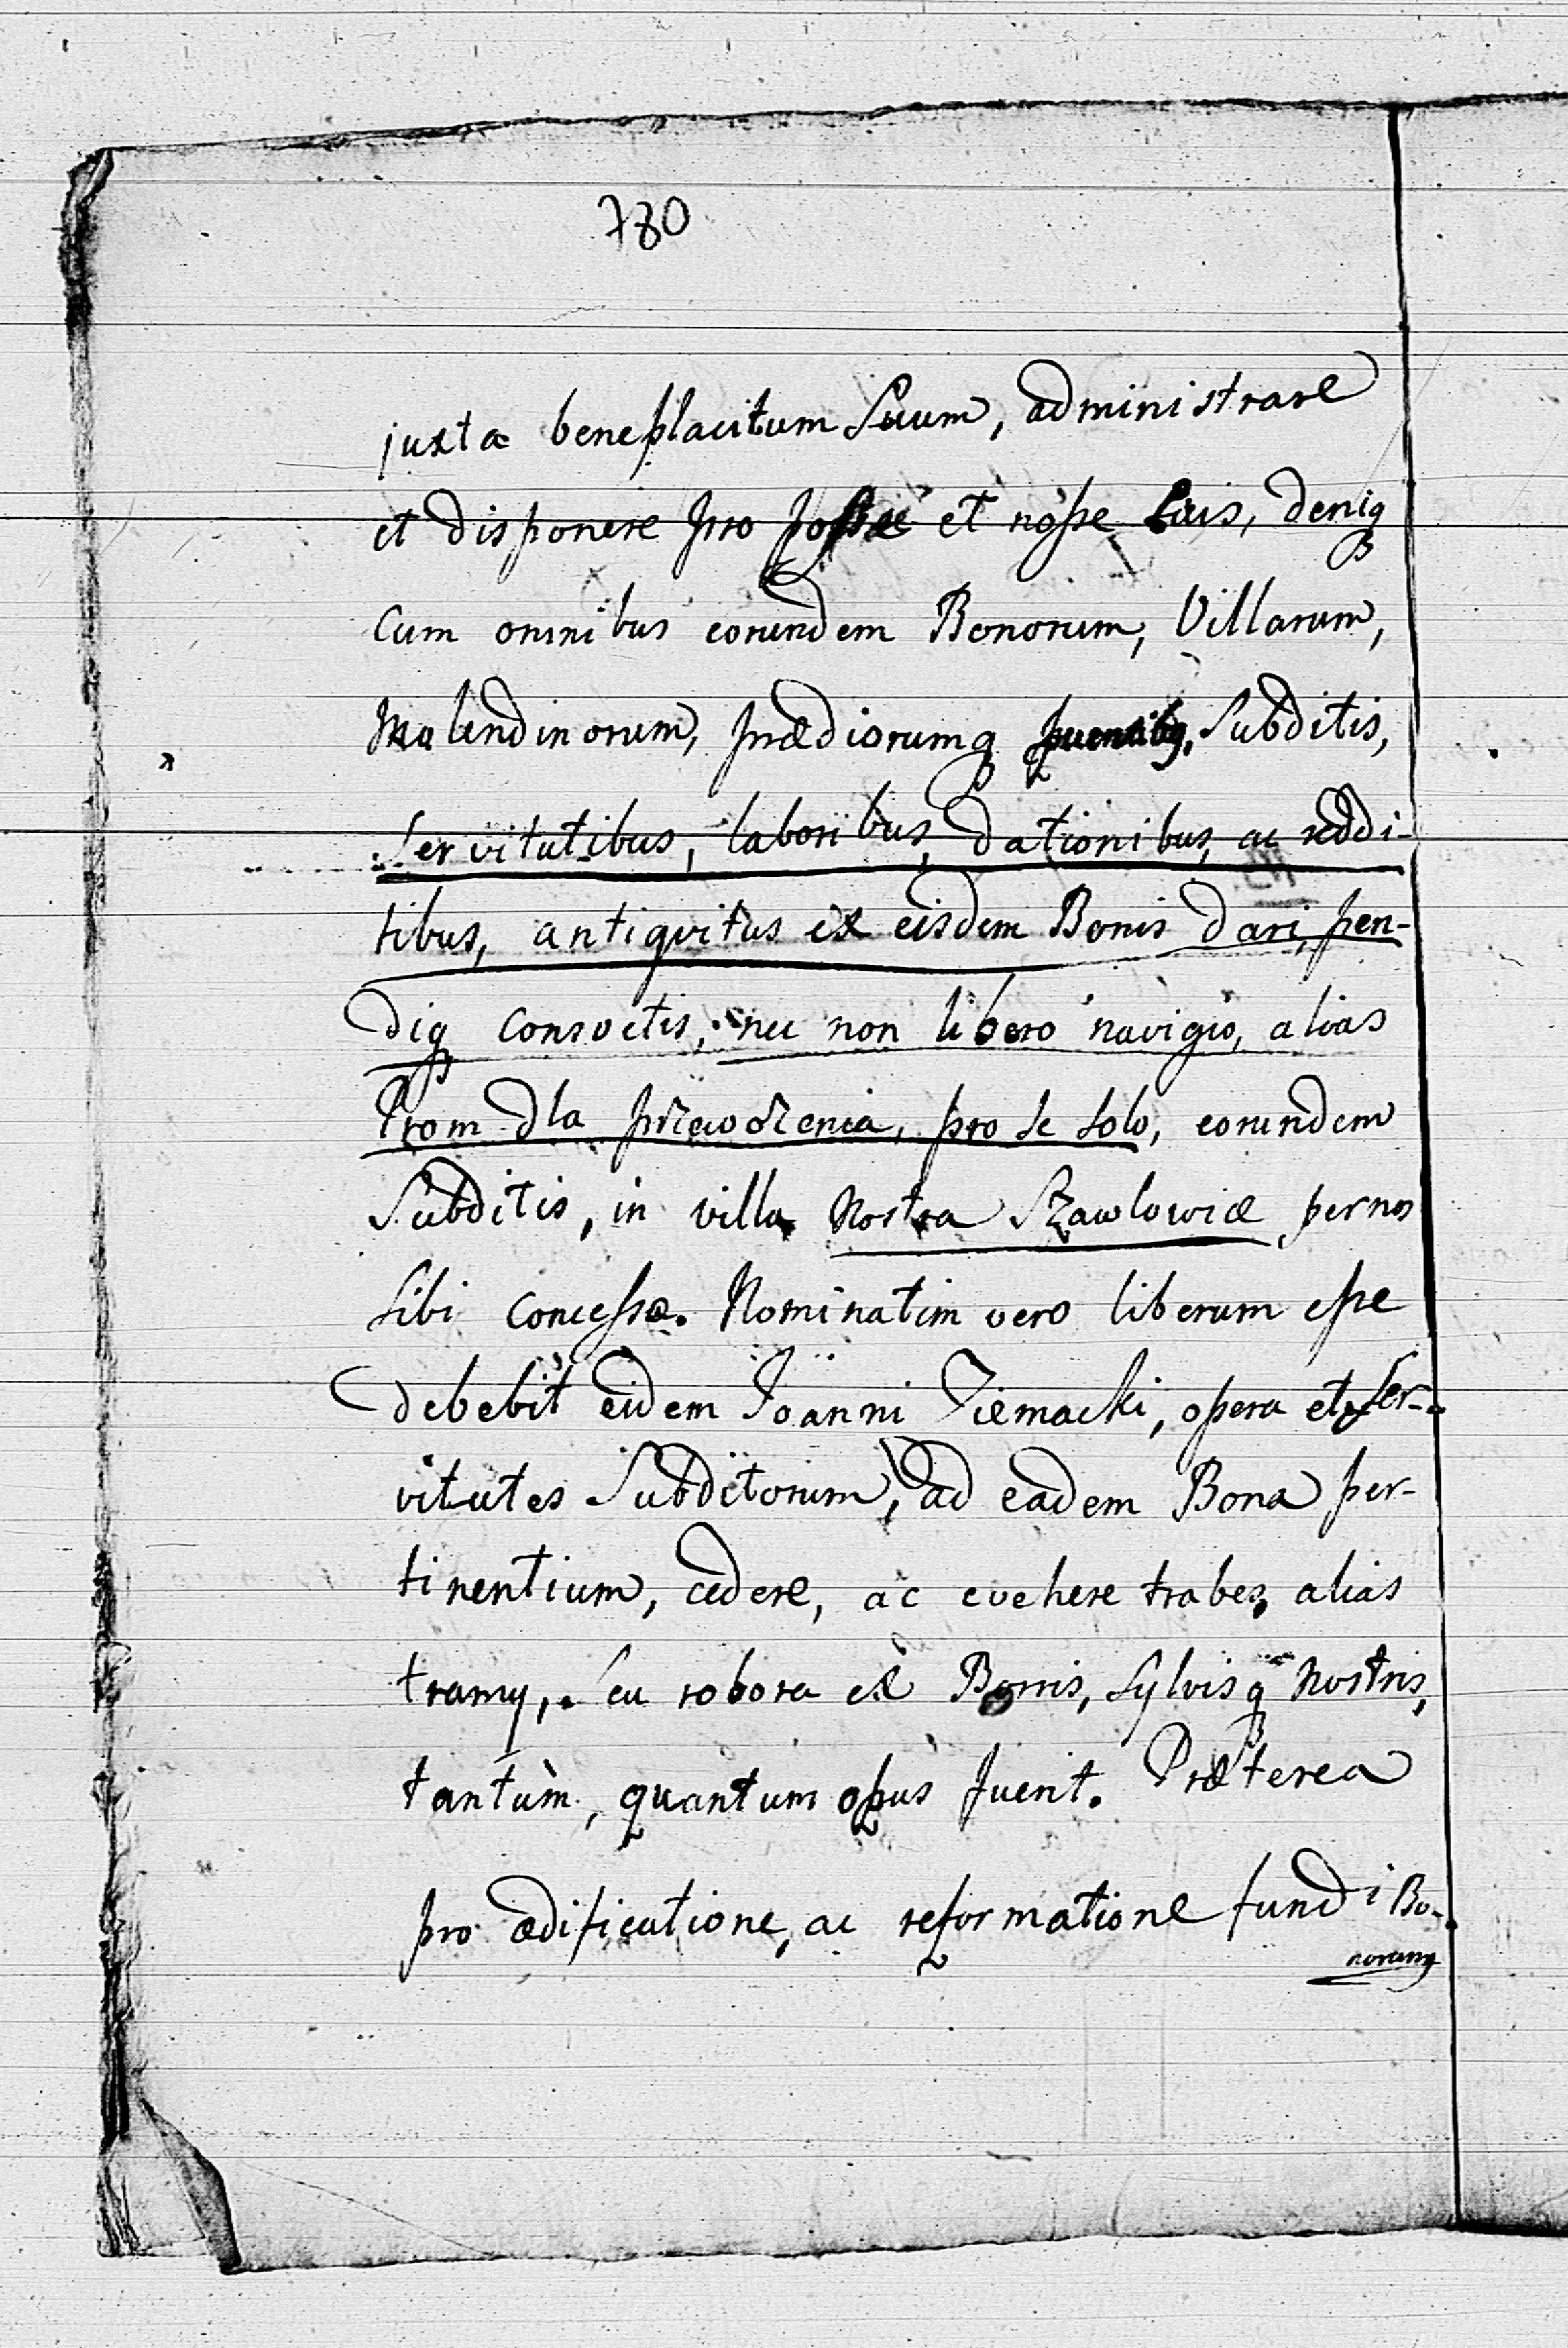 780
juxta beneplacitum Suum, administrare
et disponere pro posse et nosse Suis, deniqꝫ
cum omnibus eorundem Bonorum, Villarum,
Molendinorum, prædiorumqꝫ Subditis,
Servitutibus, laboribus, dationibus, ac reddi-
tibus, antiquitus ex eisdem Bonis dari, pen-
diqꝫ consvetis, nec non libero navigio, alias
Prom dla przewozenia, pro se solo, eorundem
Subditis, in villa Nostra Szawlowice, per nos
Sibi concesso. Nominatim vero liberum esse
debebit eidem Joanni Ziemacki, opera et Ser-
vitutes Subditorum, ad eadem Bona per-
tinentium, cedere, ac evehere trabes, alias
tramy, Seu robora ex Bonis, Sylvisqꝫ Nostris,
tantùm, quantum opus fuerit. Præterea
pro ædificatione, ac reformatione fundi Bo-
norumq